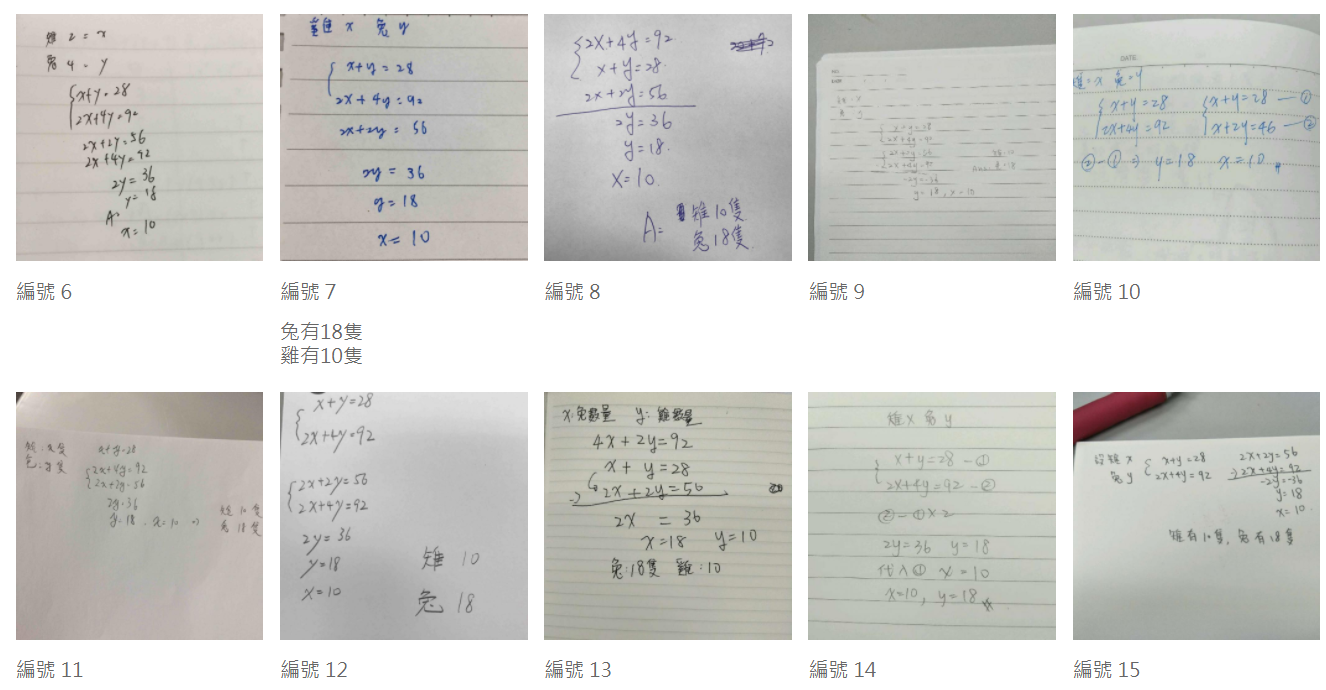 雉 2 = x
兔 4 = y
x+y=28
2x+4y=92
2x+2y=56
2x+4y=92
2y=36
y=18
A:
x=10
編號 6
雞 x 兔 y
x+y=28
2x+4y=92
2x+2y=56
2y=36
y=18
x=10
編號 7
兔有18隻
雞有10隻
2x+4y=92
x+y=28
2x+2y=56
2y=36
y=18
x=10
A= 雉10隻
兔18隻
編號 8
x+y=28
2x+4y=92
2x+2y=56
2x+4y=92
-2y=-36
y=18, x=10
編號 9
DATE
雉=x 兔=y
x+y=28 x+y=28 —①
2x+4y=92 x+2y=46 —②
②-①⇒ y=18 x=10
編號 10
x+y=28
2x+4y=92
2x+2y=56
2y=36
y=18, x=10 ⇒
雉10隻
兔18隻
編號 11
x+y=28
2x+4y=92
2x+2y=56
2x+4y=92
2y=36
y=18
x=10
雉 10
兔 18
編號 12
x:兔數量 y:雞數量
4x+2y=92
x+y=28
-) 2x+2y=56
2x = 36
x=18 y=10
兔:18隻 雞:10
編號 13
雉x 兔y
x+y=28 -①
2x+4y=92 -②
②-①×2
2y=36 y=18
代入① x=10
x=10, y=18
編號 14
設雉x
兔y
x+y=28
2x+4y=92
2x+2y=56
-) 2x+4y=92
-2y=-36
y=18
x=10
雉有10隻, 兔有18隻
編號 15